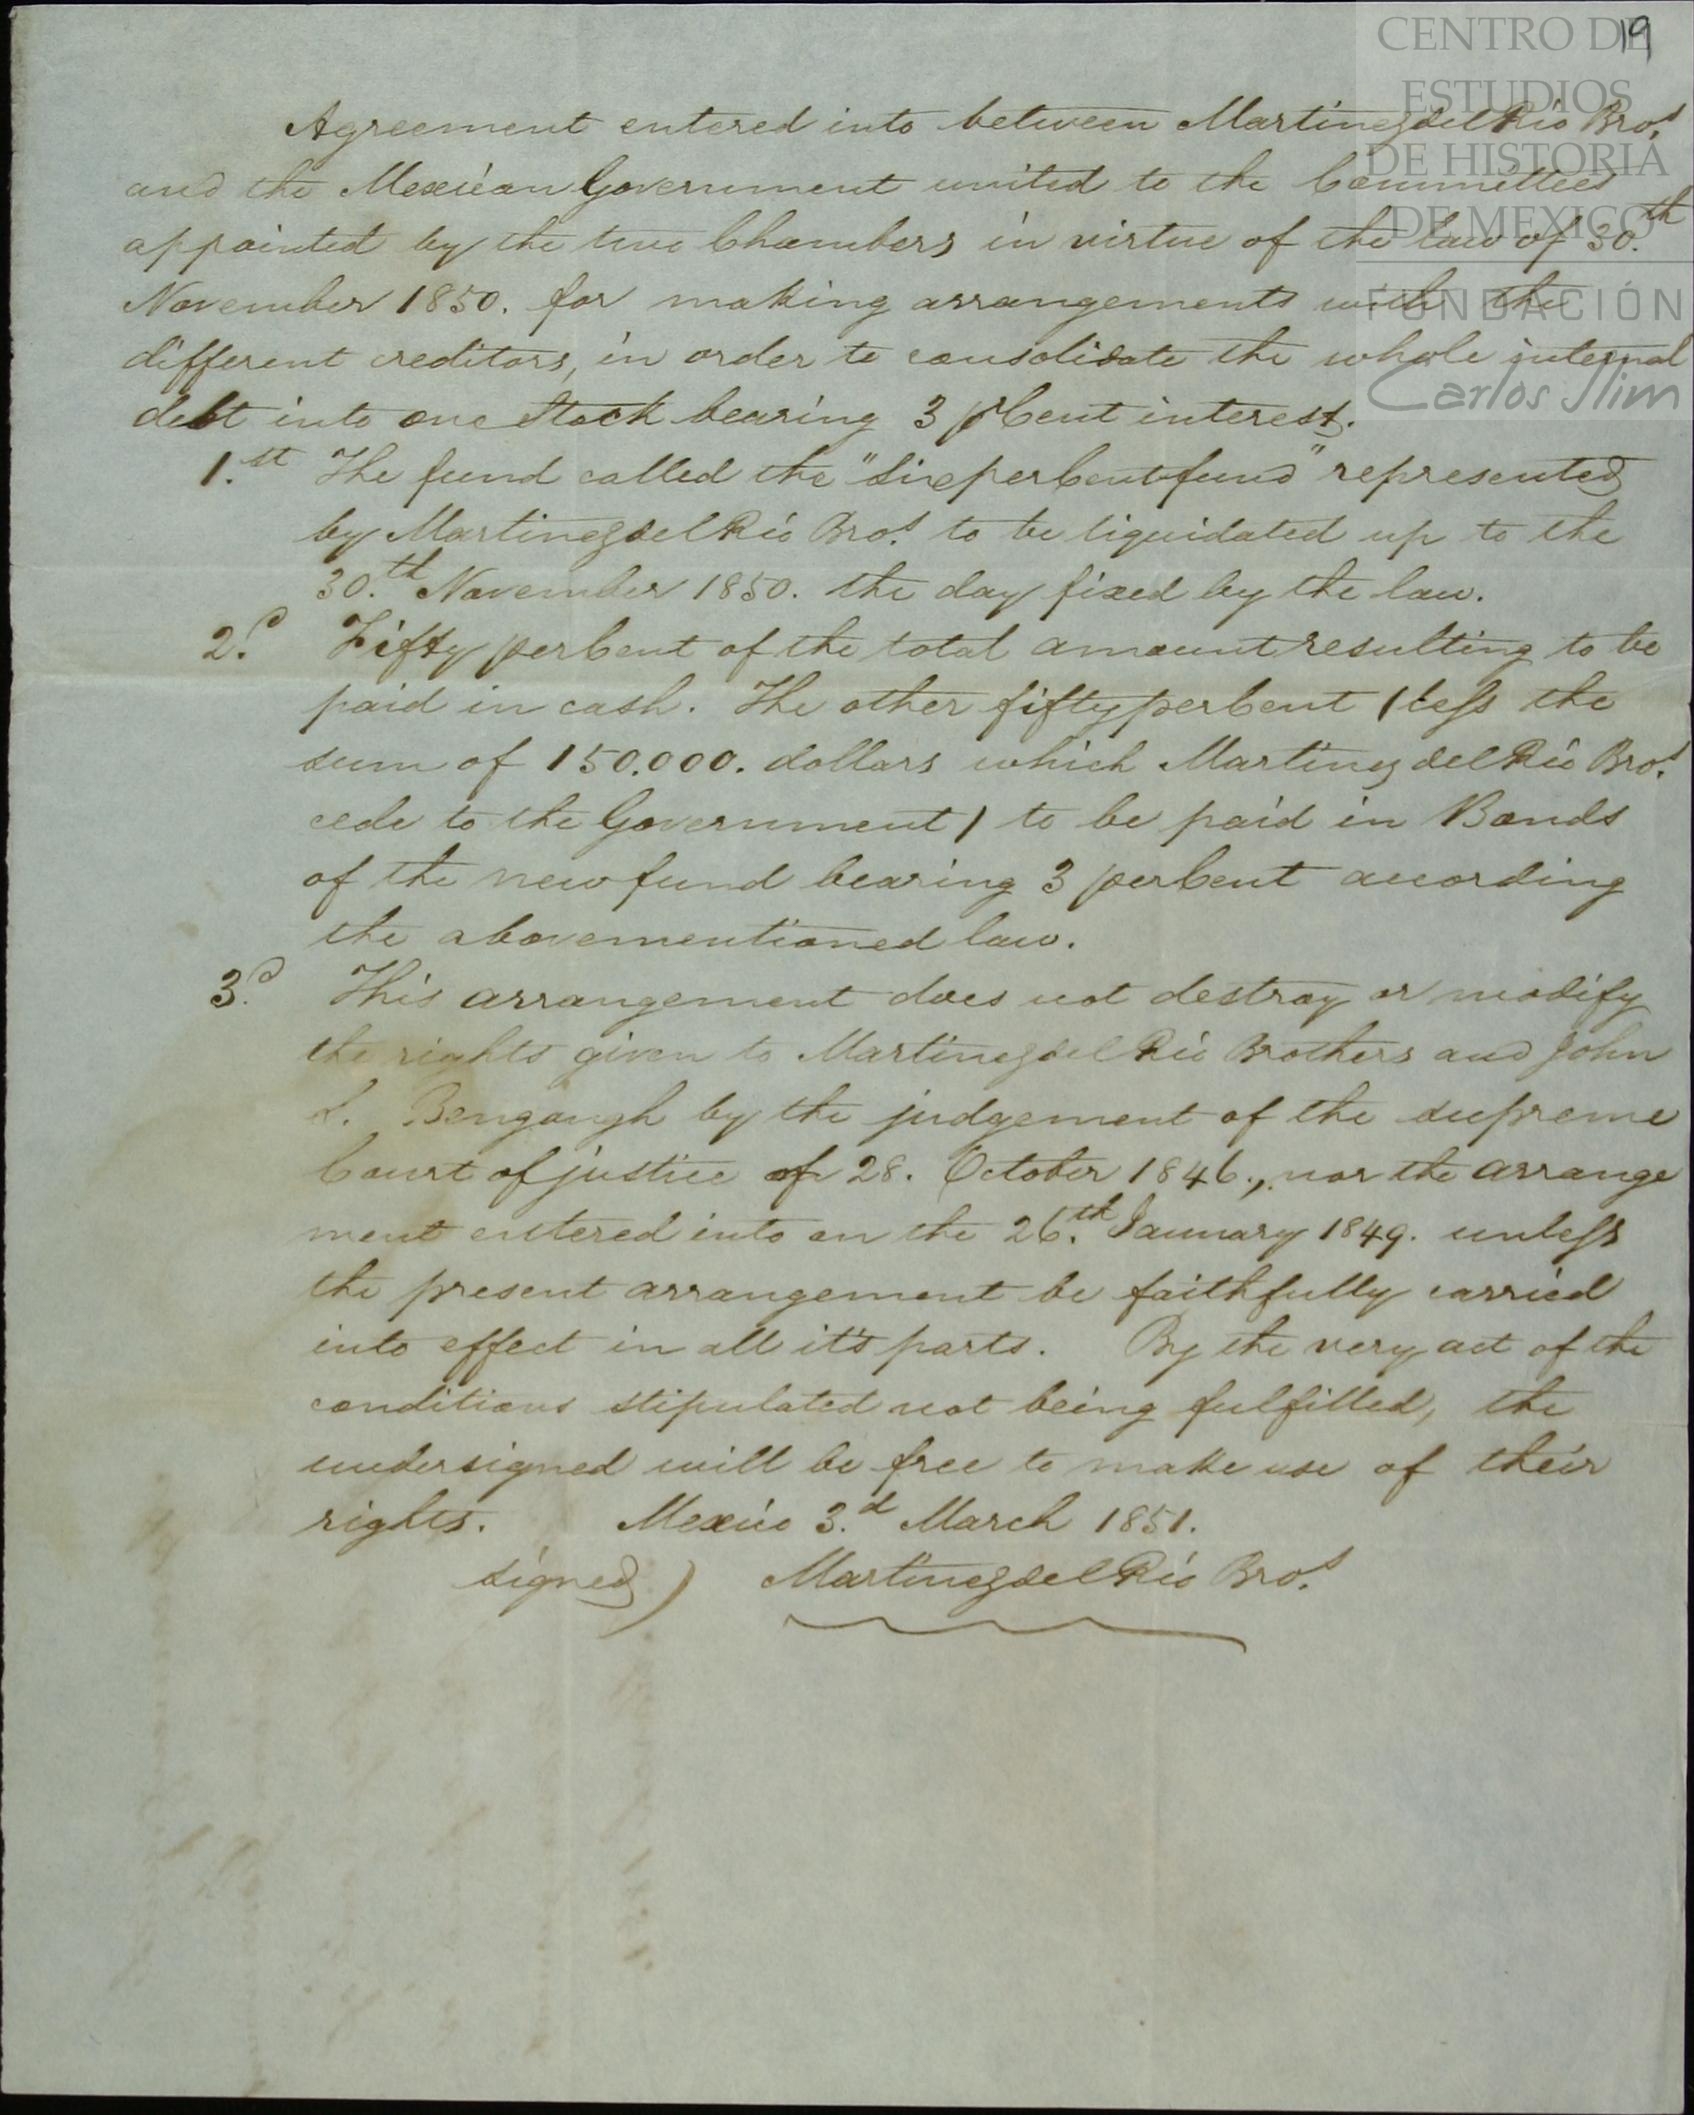 19
CENTRO DE
ESTUDIOS
DE HISTORIA
DE MEXICO
FUNDACIÓN
Carlos Slim
Agreement entered into between Martinez del Rio Bros.
and the Mexican Government united to the Committees
appointed by the two Chambers in virtue of the law of 30.th
November 1850. for making arrangements with the
different creditors, in order to consolidate the whole internal
debt into one Stock bearing 3 pCent interest.
1.st The fund called the "Six per Cent fund" represented
by Martinez del Rio Bros. to be liquidated up to the
30.th November 1850. the day fixed by the law.
2.d Fifty per Cent of the total amount resulting to be
paid in cash. The other fifty per Cent (less the
sum of 150.000. dollars which Martinez del Rio Bros.
cede to the Government) to be paid in Bonds
of the new fund bearing 3 per Cent according
the abovementioned law.
3.d This arrangement does not destroy or modify
the rights given to Martinez del Rio Brothers and John
S. Bengough by the judgement of the supreme
Court of justice of 28. October 1846., nor the arrange
ment entered into on the 26.th January 1849. unless
the present arrangement be faithfully carried
into effect in all it's parts. By the very act of the
conditions stipulated not being fulfilled, the
undersigned will be free to make use of their
rights. Mexico 3.d March 1851.
signed) Martinez del Rio Bros.